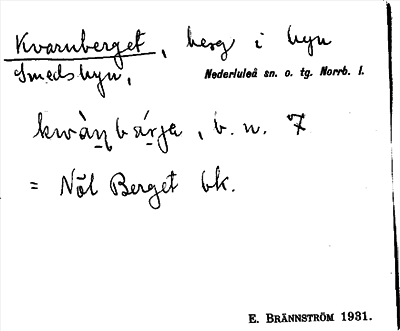 Kvarnberget, berg i byn
Smedsbyn,
Nederluleå sn. o. tg. Norrb. l.
kwàn̠bǽrjɐ, b. n. 7
= Nōl Berget bk.
E. BRÄNNSTRÖM 1931.